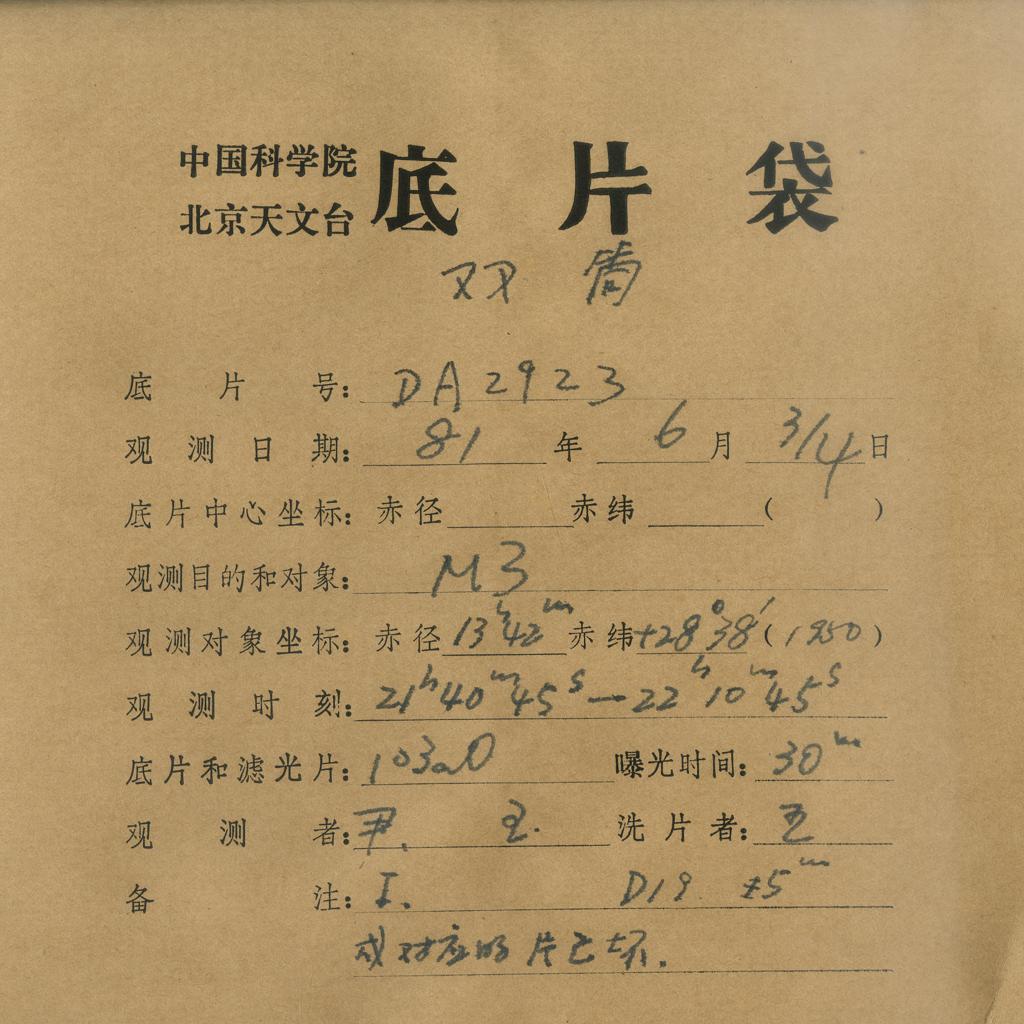 中国科学院
北京天文台
底片袋
双筒
底片号：DA2923
观测日期：81年6月3/4日
底片中心坐标：赤径 赤纬 （ ）
观测目的和对象：M3
观测对象坐标：赤径13ʰ42ᵐ赤纬+28°38′（1950）
观测时刻：21ʰ40ᵐ45ˢ—22ʰ10ᵐ45ˢ
底片和滤光片：103aO 曝光时间：30ᵐ
观测者：尹. 王. 洗片者：王
备注：I. D19 ±5ᵐ
成对应的片已坏.